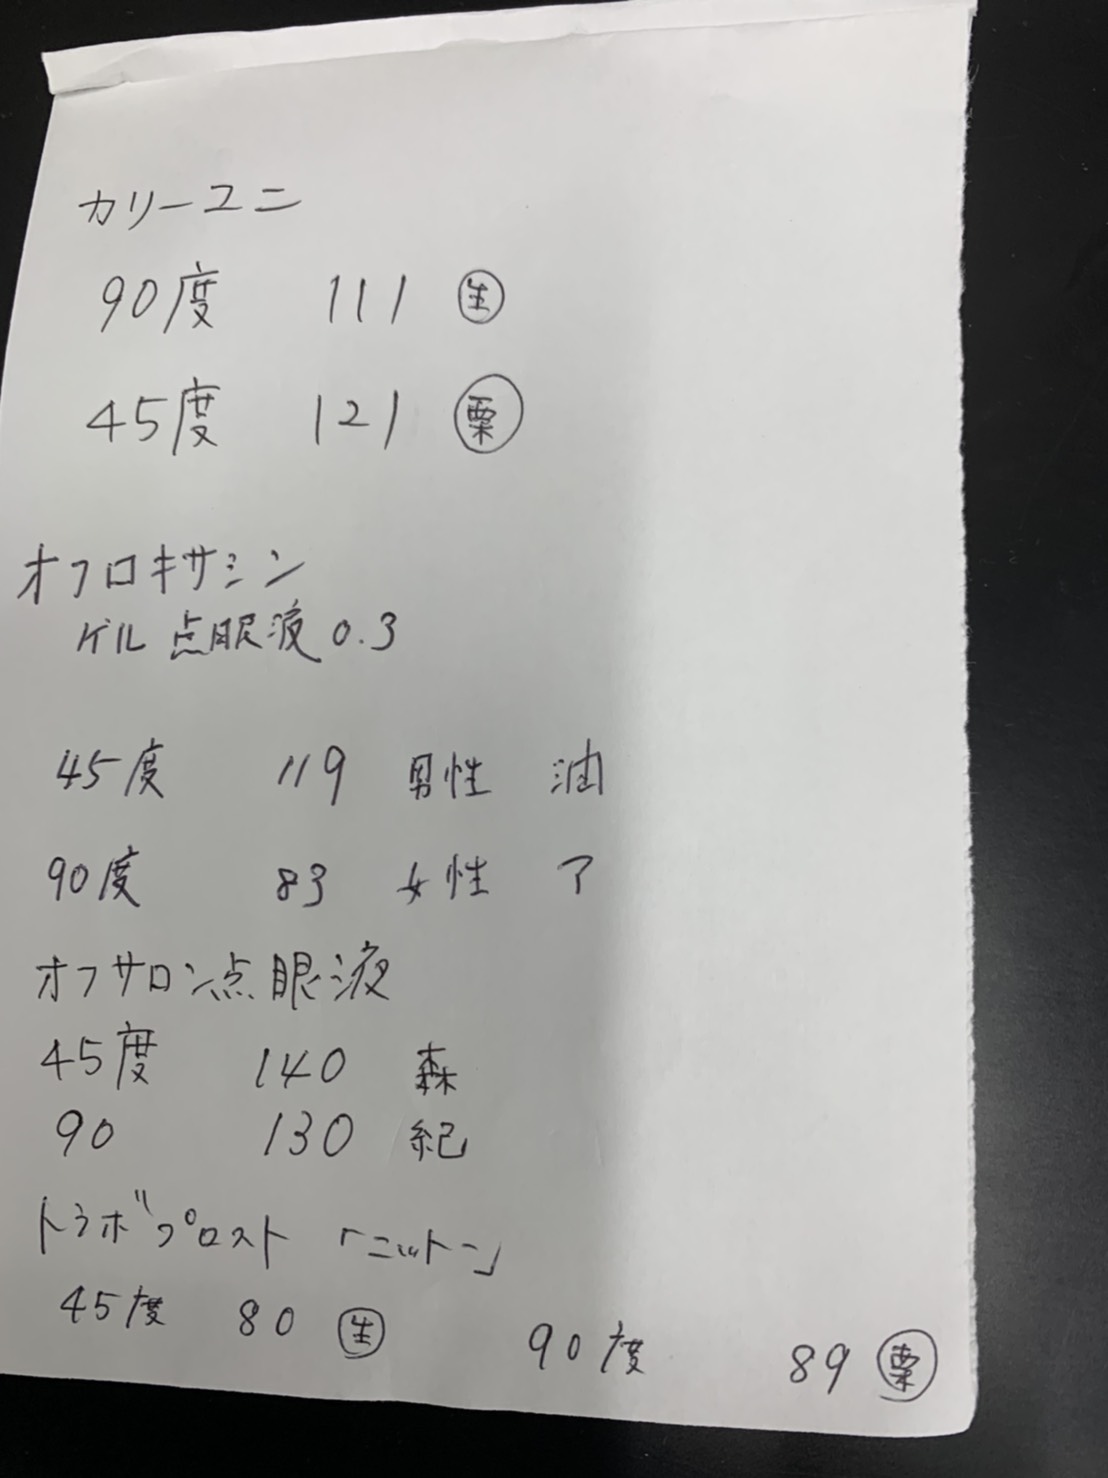 カリーユニ
90度 111 ㊤生
45度 121 栗
オフロキサシン
ゲル 点眼液 0.3
45度 119 男性 油
90度 83 女性 ア
オフサロン点眼液
45度 140 森
90 130 紀
トラボプロスト 「ニットー」
45度 80 生 90度 89 栗